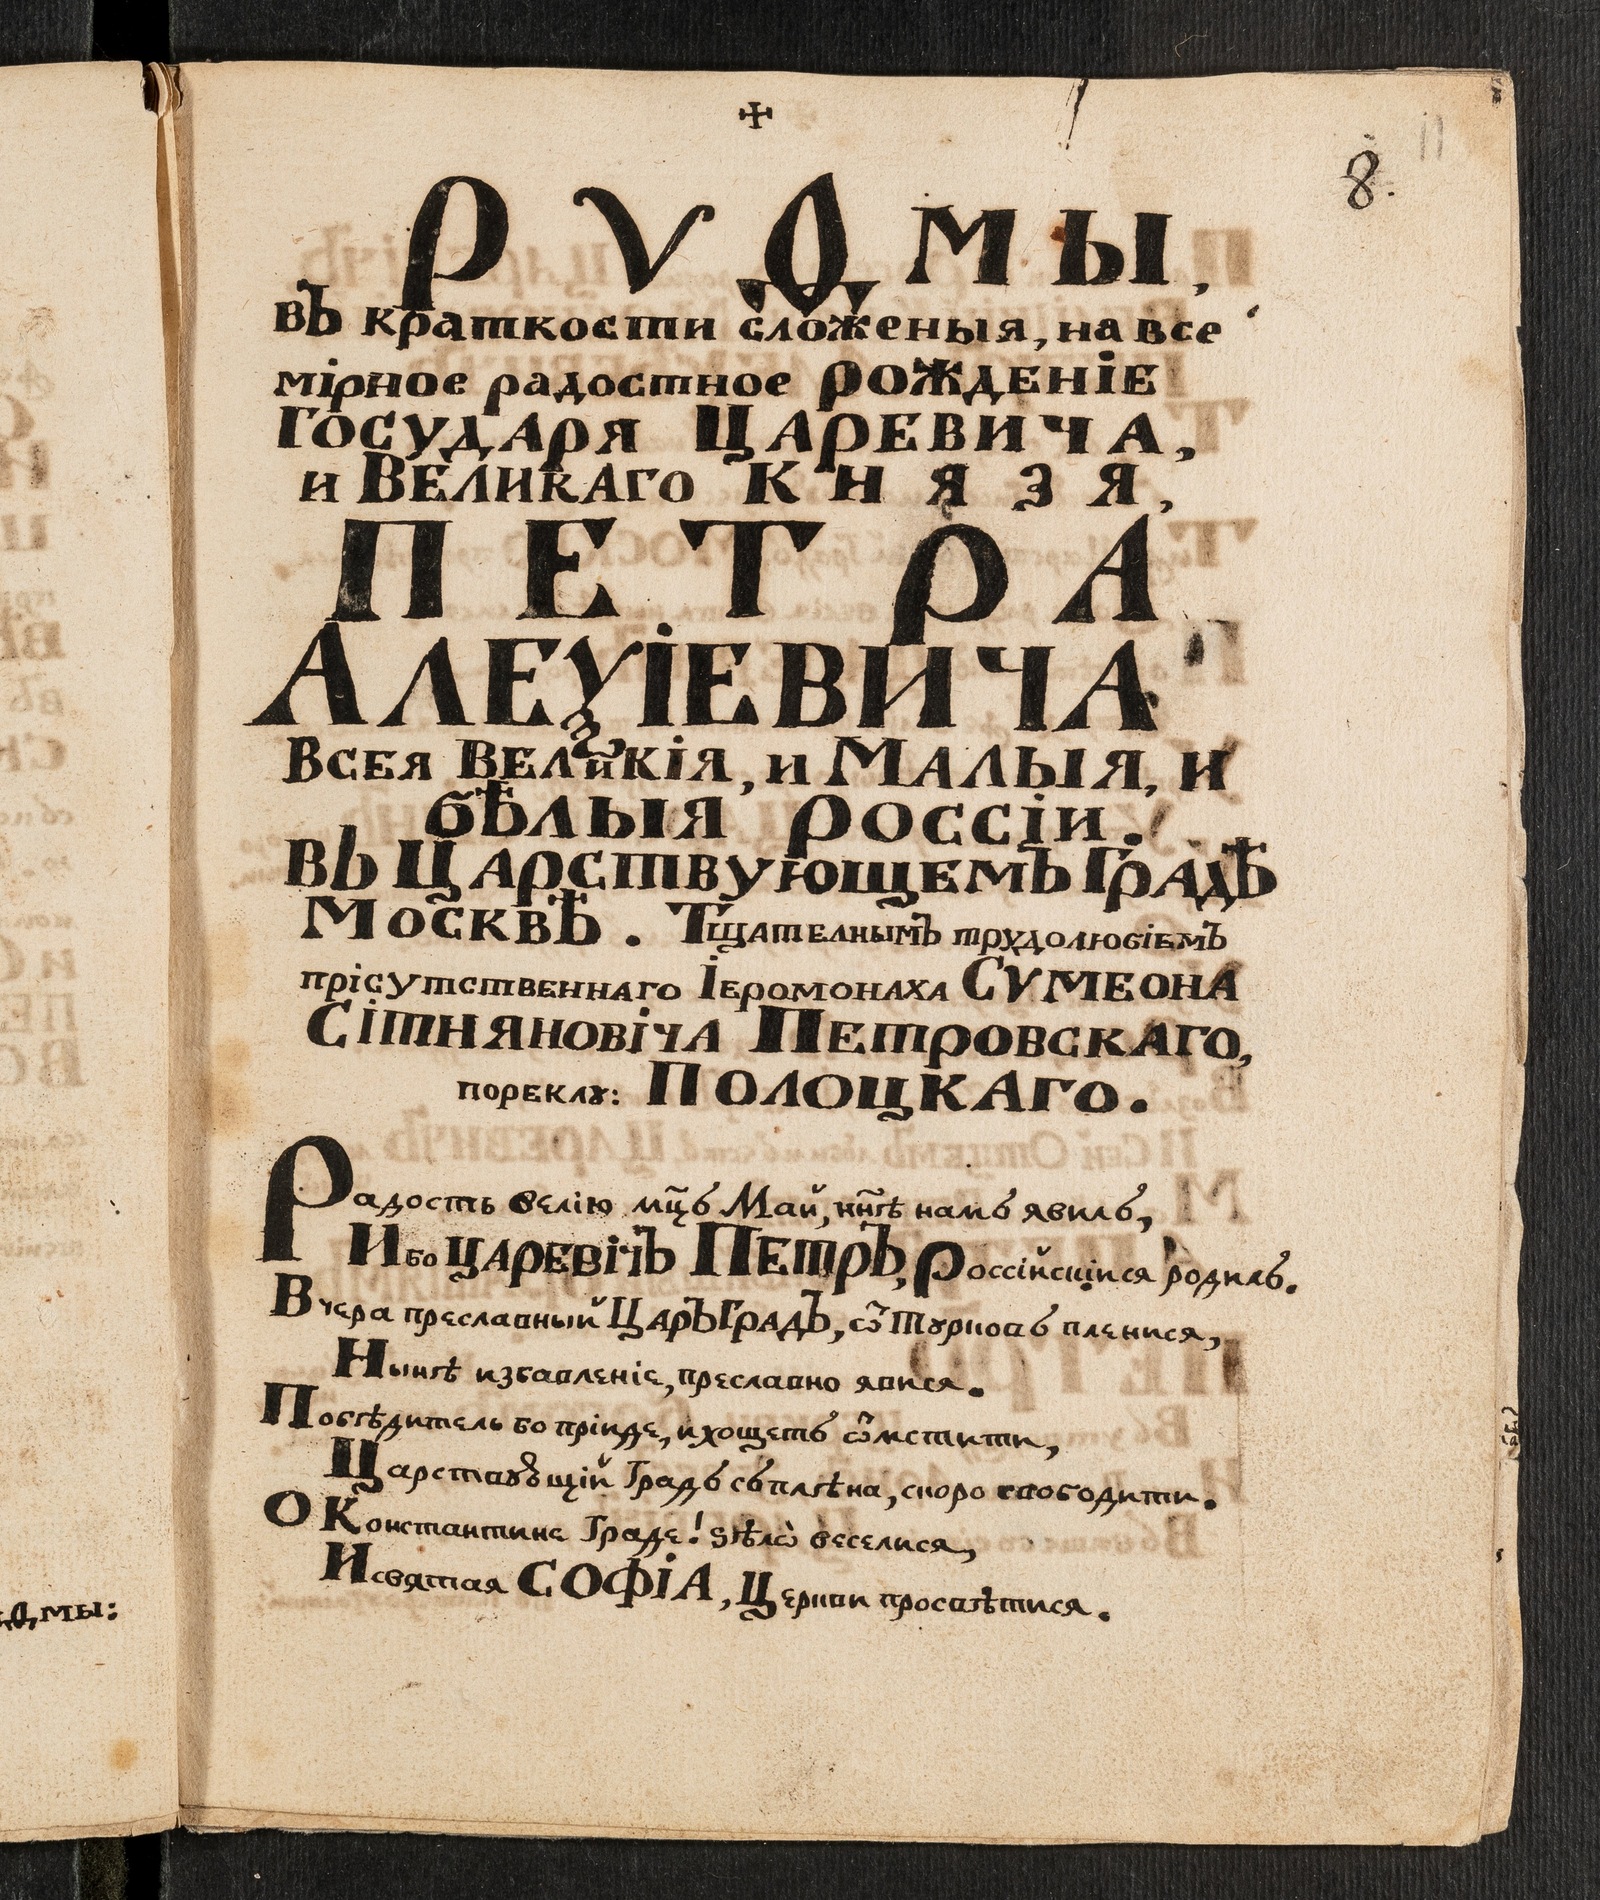 ✠
8.
11
РѴѲМЫ,
въ краткости сложеныя, на все
мірное радостное РОЖДЕНІЕ
ГОСУДАРЯ ЦАРЕВИЧА,
и ВЕЛИКАГО КНЯЗЯ,
ПЕТРА
АЛЕѮІЕВИЧА
ВСЕЯ ВЕЛИКІЯ, и МАЛЫЯ, и
бѢЛЫЯ РОССІИ.
ВЬ ЦАРСТВУЮЩЕМЪ ГРАДѢ
МОСКВѢ. Тщателнымъ трудолюбіемъ
прісутственнаго Іеромонаха СѴМЕОНА
СІТНЯНОВІЧА ПЕТРОВСКАГО,
пореклꙋ: ПОЛОЦКАГО.
Радость велію мц҃ъ Май, нн҃ѣ намъ явилъ,
Ибо ЦАРЕВІЧЪ ПЕТРЪ, Россійскіися родилъ.
Вчера преславный ЦАРЬГРАДЪ, ѿ Тꙋрковъ пленися,
Нынѣ избавленіе, преславно явися.
Побѣдитель бо пріиде, и хощетъ ѿмстити,
Царствꙋющій Градъ съ плѣна, скоро свободити.
О Константине Граде! ѕѣлѡ веселися,
И святая СОФІА, Церкви просвѣтися.